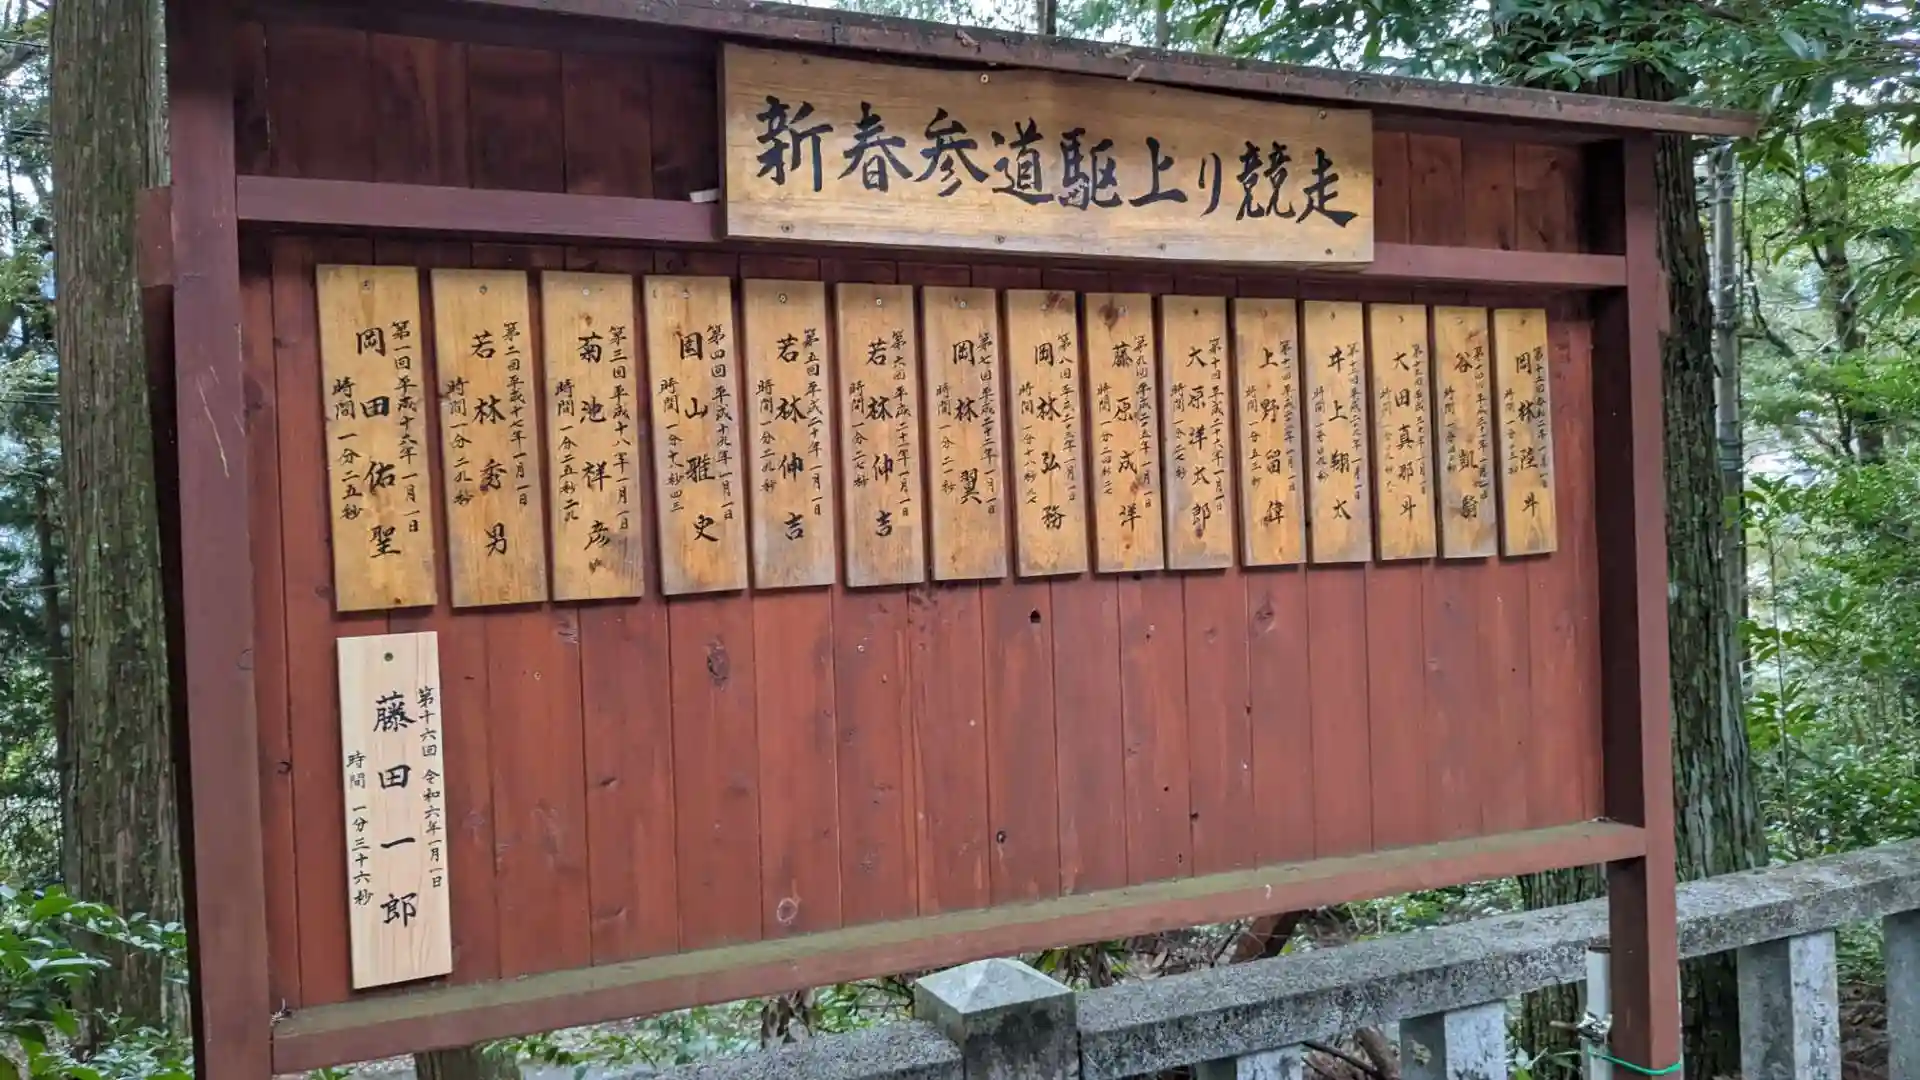 新春参道駆上り競走
第一回 平成十六年一月一日
岡田佑聖
時間 一分二五秒
第二回 平成十七年一月一日
若林秀男
時間 一分二九秒
第三回 平成十八年一月一日
菊池祥彦
時間 一分二五秒二九
第四回 平成十九年一月一日
園山雅史
時間 一分十八秒四三
第五回 平成二十年一月一日
若林伸吉
時間 一分二九秒
第六回 平成二十一年一月一日
若林伸吉
時間 一分二七秒
第七回 平成二十二年一月一日
岡林翼
時間 一分二一秒
第八回 平成二十三年一月一日
岡林弘務
時間 一分十八秒九七
第九回 平成二十五年一月一日
藤原成洋
時間 一分二四秒二七
第十回 平成二十六年一月一日
大原洋太郎
時間 一分二七秒
第十一回
一月一日
上野留偉
時間 一分五三秒
第十二回
一月一日
井上翔太
時間
第十三回
大田真那斗
時間
第十四回
谷凱
時間
岡林陸斗
時間
第十六回 令和六年一月一日
藤田一郎
時間 一分三十六秒